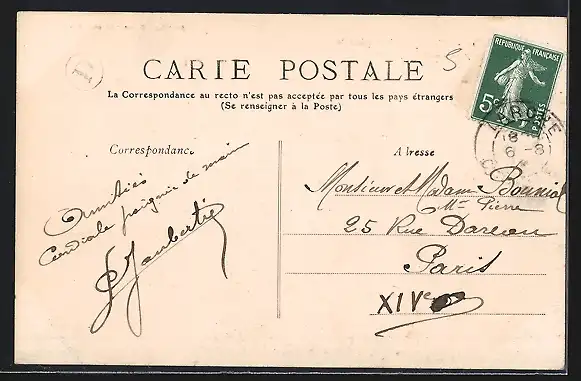 5
CARTE POSTALE
La Correspondance au recto n'est pas acceptée par tous les pays étrangers
(Se renseigner à la Poste)
REPUBLIQUE FRANÇAISE
5c
POSTES
Correspondance
Adresse
Amitiés
Cordiale poignée de main
Jaubertie
Monsieur et Madame
Mce Pierre
25 Rue Dareau
Paris
XIVe